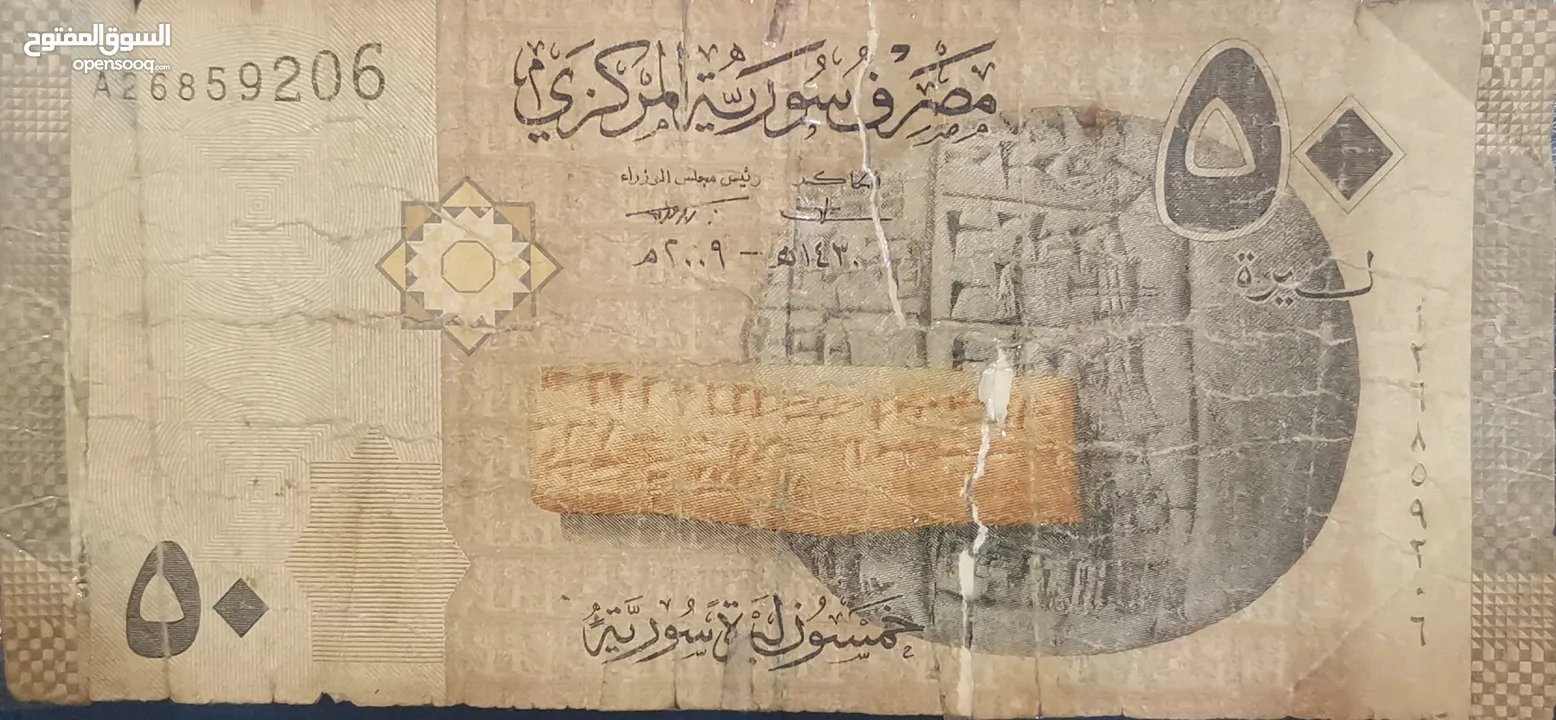 السوق المفتوح
opensooq.com
A26859206
مصرف سورية المركزي
٥٠
الحاكم رئيس مجلس الوزراء
١٤٣٠هـ - ٢٠٠٩م
ليرة
أ٢٦٨٥٩٢٠٦
٥٠
خمسون ليرة سورية